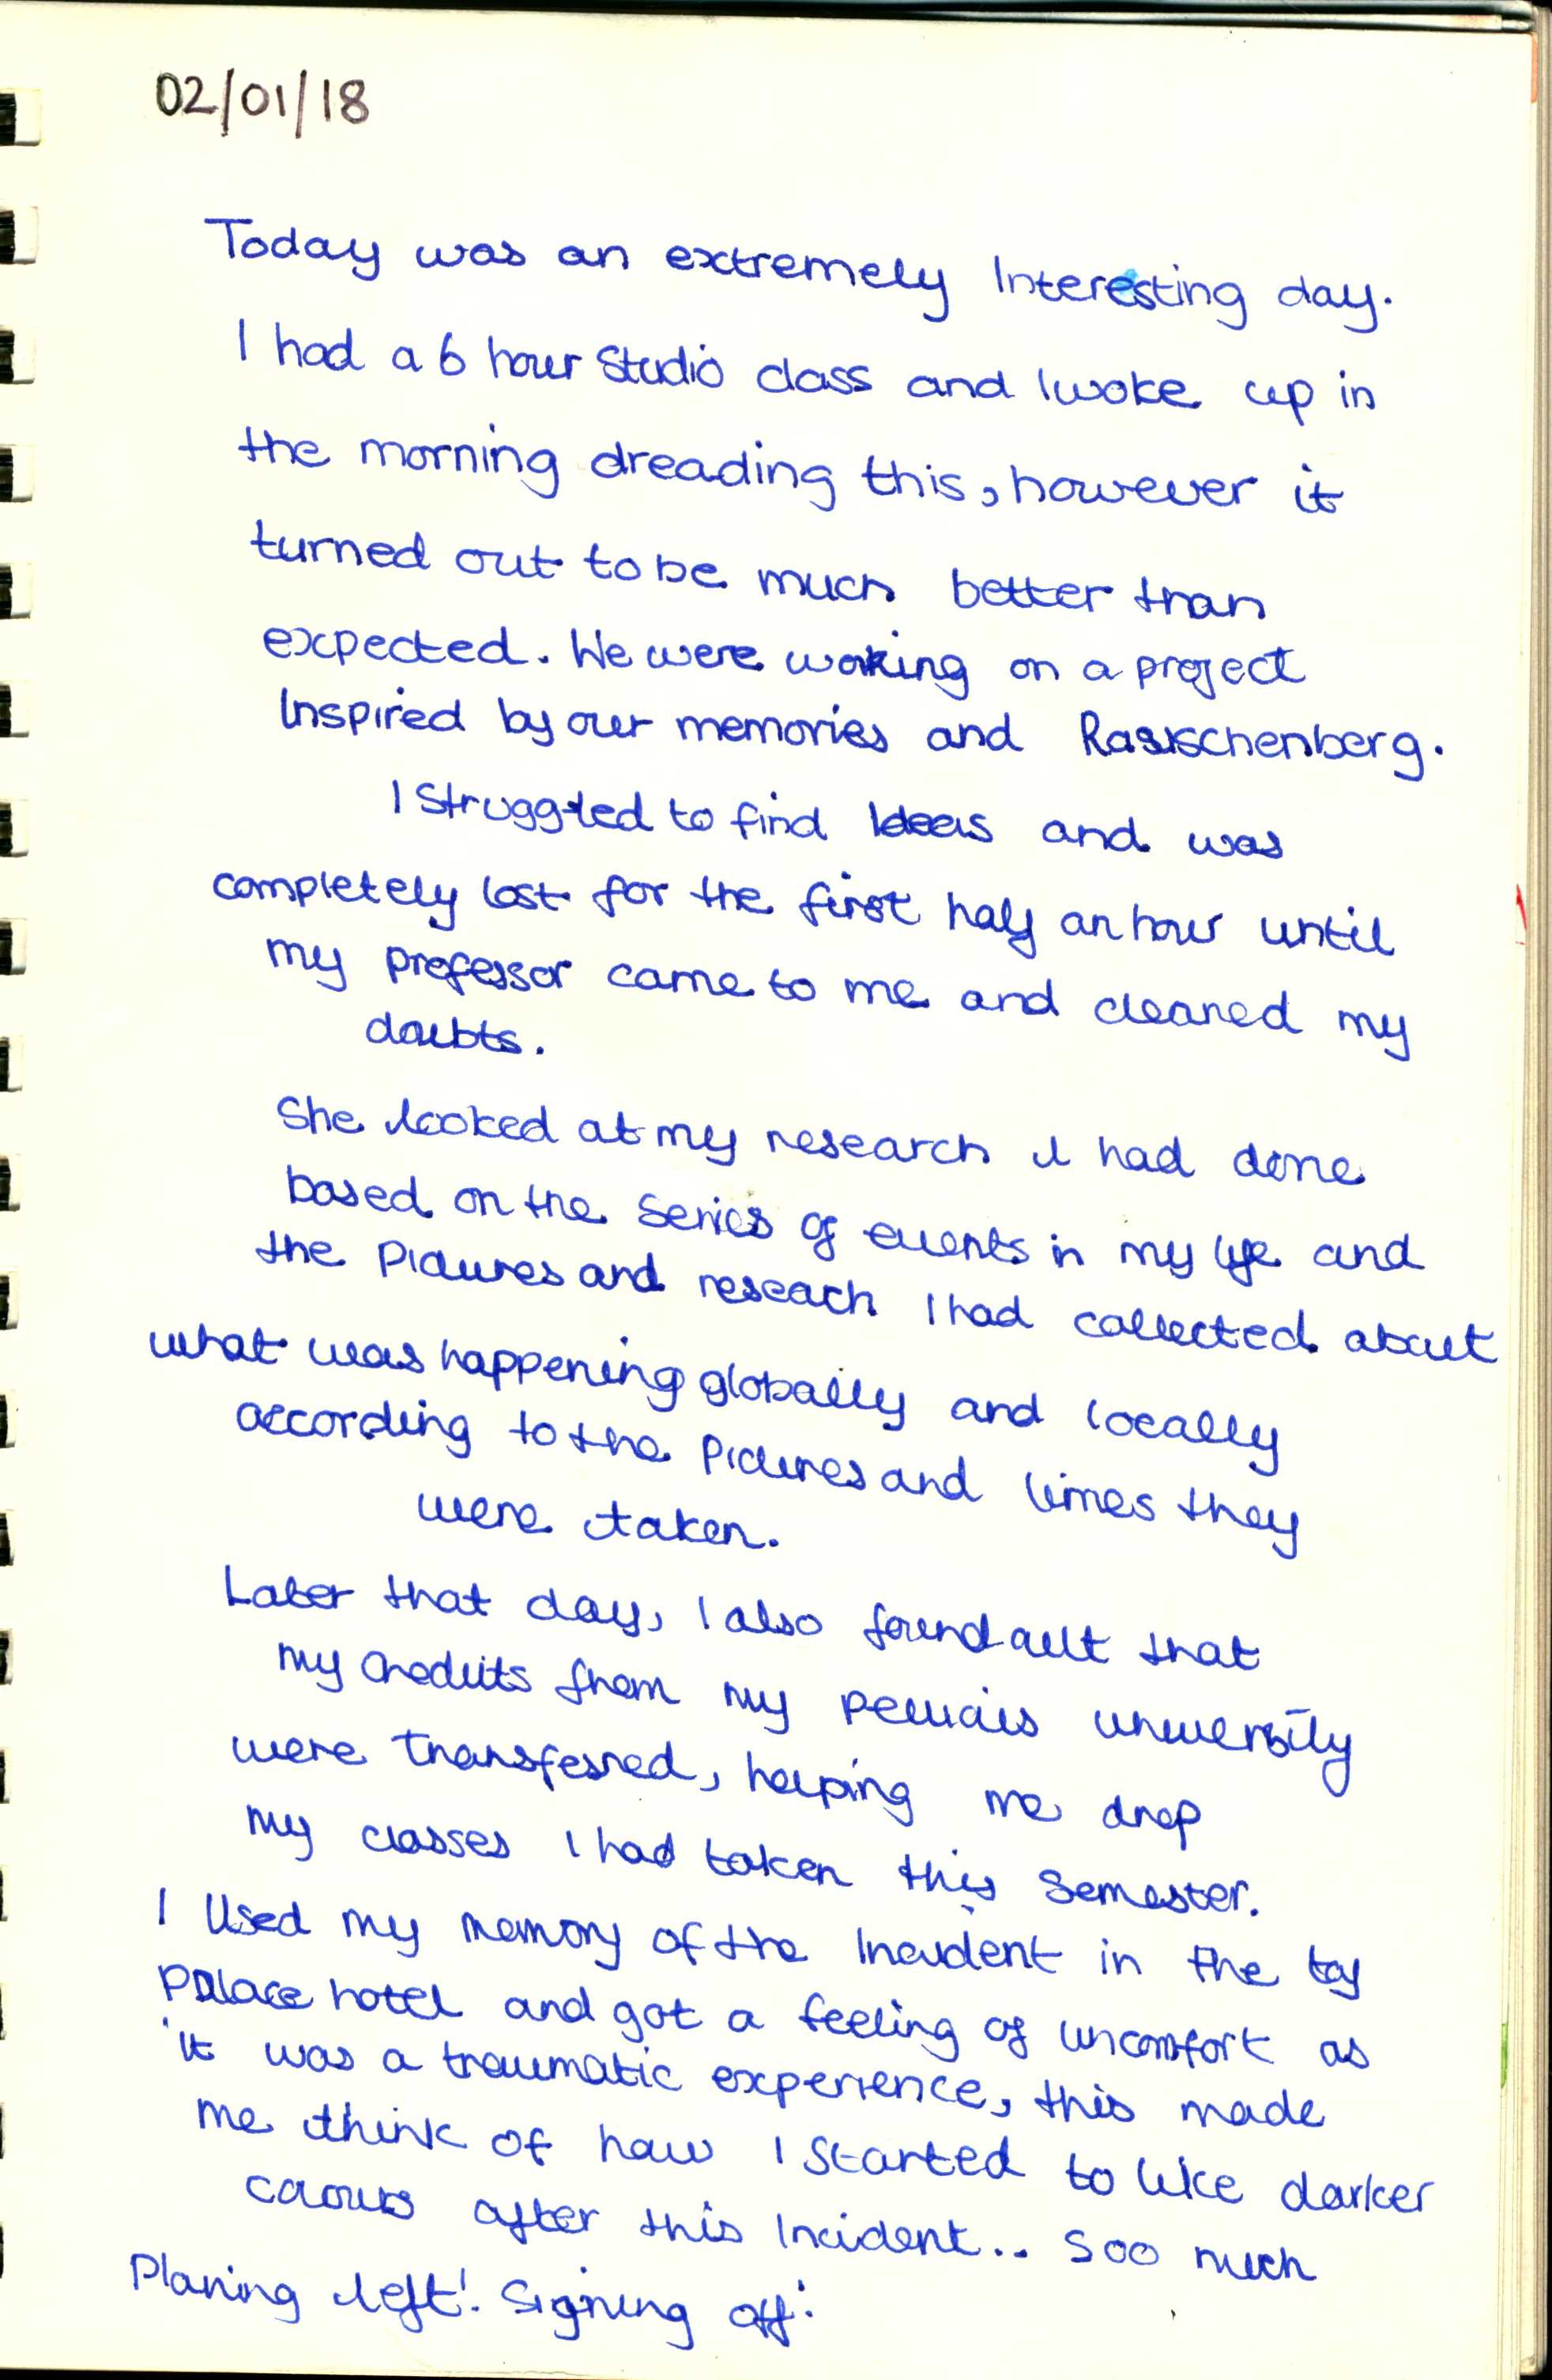 02/01/18
Today was an extremely Interesting day.
I had a 6 hour Studio class and I woke up in
the morning dreading this, however it
turned out to be much better than
expected. We were working on a project
Inspired by our memories and Rasuschenberg.
I Struggled to find Ideas and was
completely lost for the first half an hour until
my professor came to me and cleared my
doubts.
She looked at my research I had done
based on the Series of events in my life and
the Pictures and reseach I had collected about
what was happening globally and locally
according to the Pictures and times they
were taken.
Later that day, I also found out that
my credits from my university
were transferred, helping me drop
my classes I had taken this Semester.
I Used my memory of the Incident in the taj
Palace hotel and got a feeling of uncomfort as
it was a traumatic experience, this made
me think of how I Started to like darker
colours after this Incident.. Soo much
Planing left! Signing off!